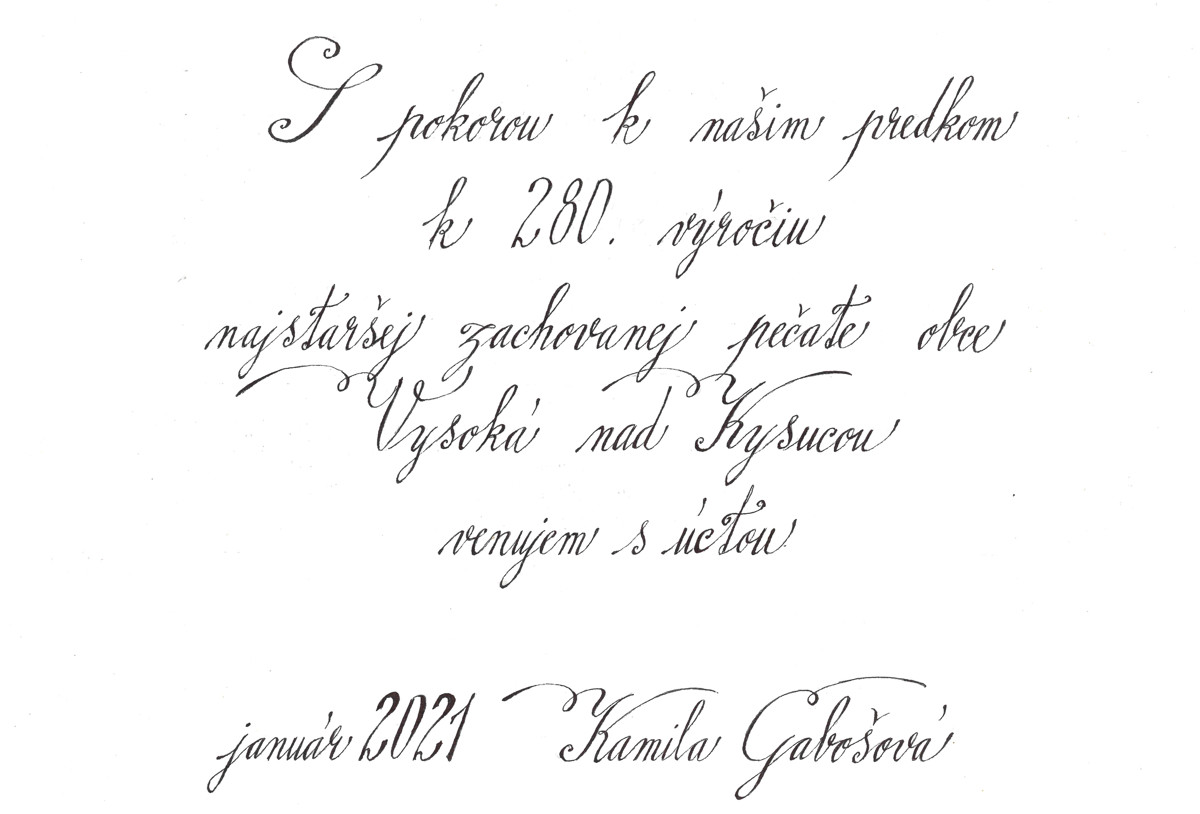 S pokorou k našim predkom
k 280. výročiu
najstaršej zachovanej pečate obce
Vysoká nad Kysucou
venujem s úctou
január 2021 Kamila Gabošová